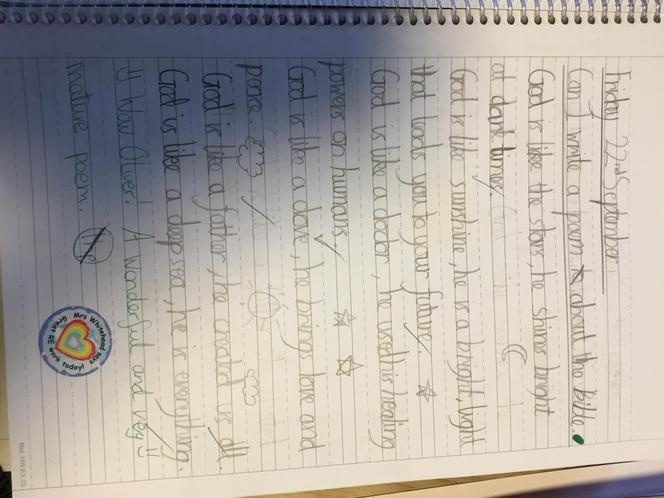 Friday 22nd September
Can I write a poem to about the Bible.
God is like the stars, he shines bright
at dark times.
God is like sunshine, he is a bright, light
that leads you to your future.
God is like a doctor, he used his healing
powers on humans.
God is like a dove, he brings love and
peace.
God is like a father, he created us all.
God is like a deep sea, he is everything.
Wow Oliver! A wonderful and very
mature poem.
Mrs Whitehead says
Great RE work today!